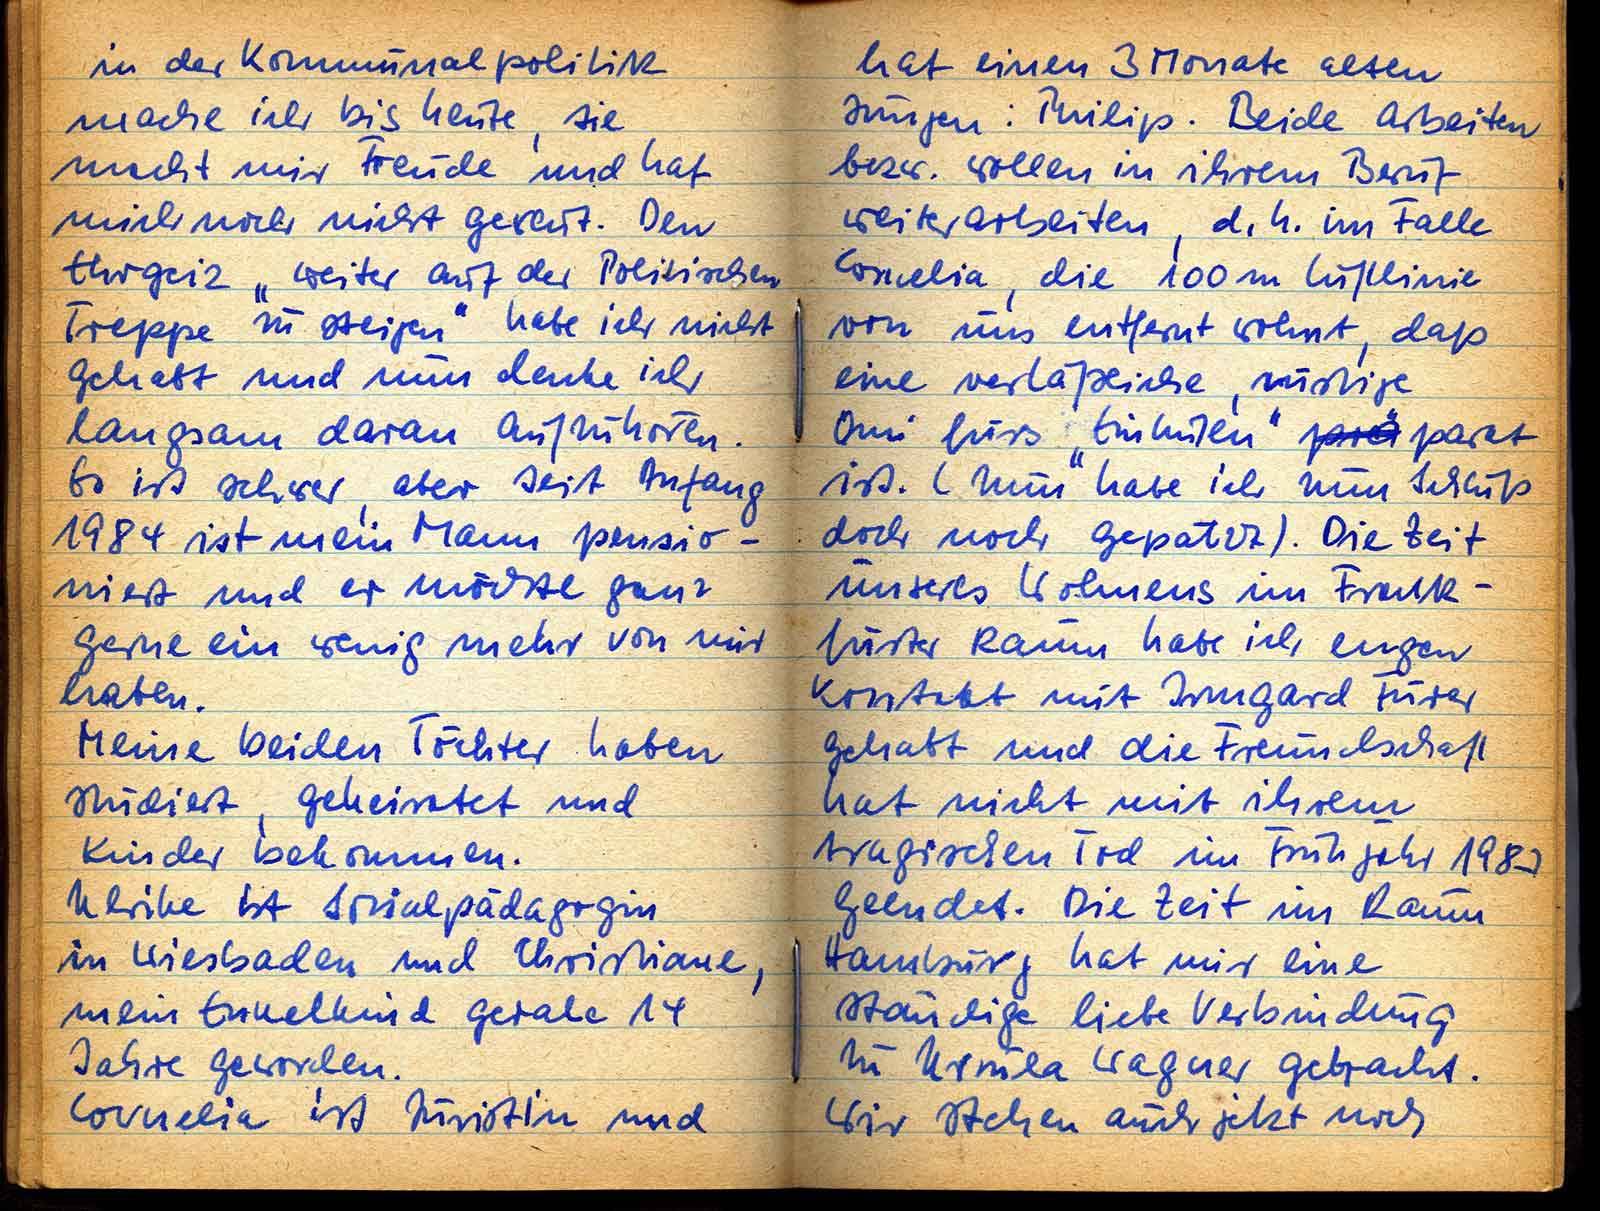 in der Kommunalpolitik
mache ich bis heute, sie
macht mir Freude und hat
mich noch nicht gereut. Den
Ehrgeiz „weiter auf der Politischen
Treppe zu steigen“ habe ich nicht
gehabt und nun denke ich
langsam daran aufzuhören.
Es ist schwer, aber seit Anfang
1984 ist mein Mann pensio-
niert und er möchte ganz
gerne ein wenig mehr von mir
haben.
Meine beiden Töchter haben
studiert, geheiratet und
Kinder bekommen.
Ulrike ist Sozialpädagogin
in Wiesbaden und Christiane,
mein Enkelkind gerade 14
Jahre geworden.
Cornelia ist Juristin und
hat einen 3 Monate alten
Jungen: Philip. Beide arbeiten
bezw. wollen in ihrem Beruf
weiterarbeiten, d.h. im Falle
Cornelia, die 100 m Luftlinie
von uns entfernt wohnt, daß
eine verläßliche, rüstige
Omi fürs "Einhüten" parat
ist. („Nun“ habe ich zum Schluß
doch noch gepatzt). Die Zeit
unseres Wohnens im Frank-
furter Raum habe ich engen
Kontakt mit Irmgard
gehabt und die Freundschaft
hat nicht mit ihrem
tragischen Tod im Frühjahr
geendet. Die Zeit im Raum
Hamburg hat mir eine
ständige liebe Verbindung
zu Ursula Wagner gebracht.
Wir stehen auch jetzt noch